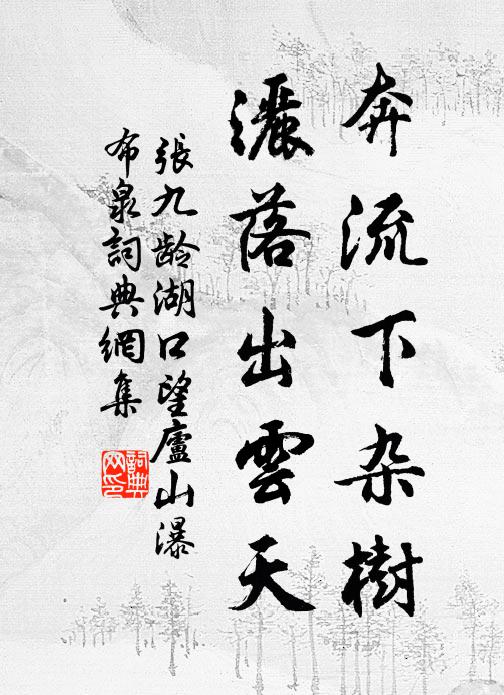 奔流下杂樹
灑落出雲天
張九龄湖口望廬山瀑
布泉詞典網集
詞典网印